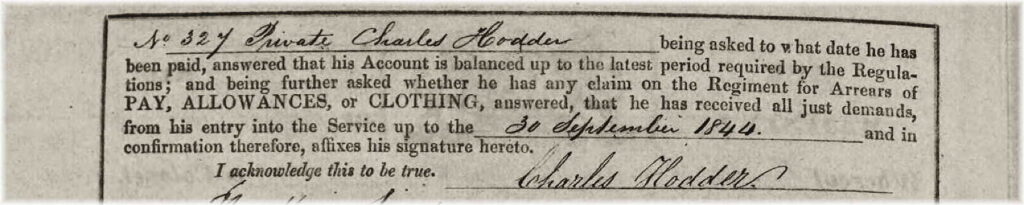 No 327 Private Charles Hodder being asked to what date he has
been paid, answered that his Account is balanced up to the latest period required by the Regula-
tions; and being further asked whether he has any claim on the Regiment for Arrears of
PAY, ALLOWANCES, or CLOTHING, answered, that he has received all just demands,
from his entry into the Service up to the 30 September 1844. and in
confirmation therefore, affixes his signature hereto.
I acknowledge this to be true. Charles Hodder